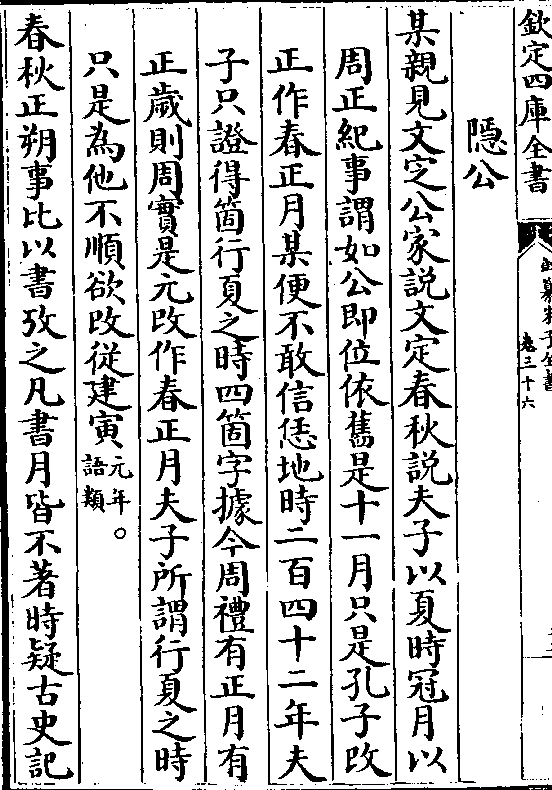 欽定四庫全書
御纂朱子全書
卷三十六
隠公
某親見文定公家説文定春秋説夫子以夏時冠月以
周正紀事謂如公即位依舊是十一月只是孔子改
正作春正月某便不敢信恁地時二百四十二年夫
子只證得箇行夏之時四箇字據今周禮有正月有
正歲則周實是元改作春正月夫子所謂行夏之時
只是為他不順欲改從建寅元年
語類。
春秋正朔事比以書攷之凡書月皆不著時疑古史記